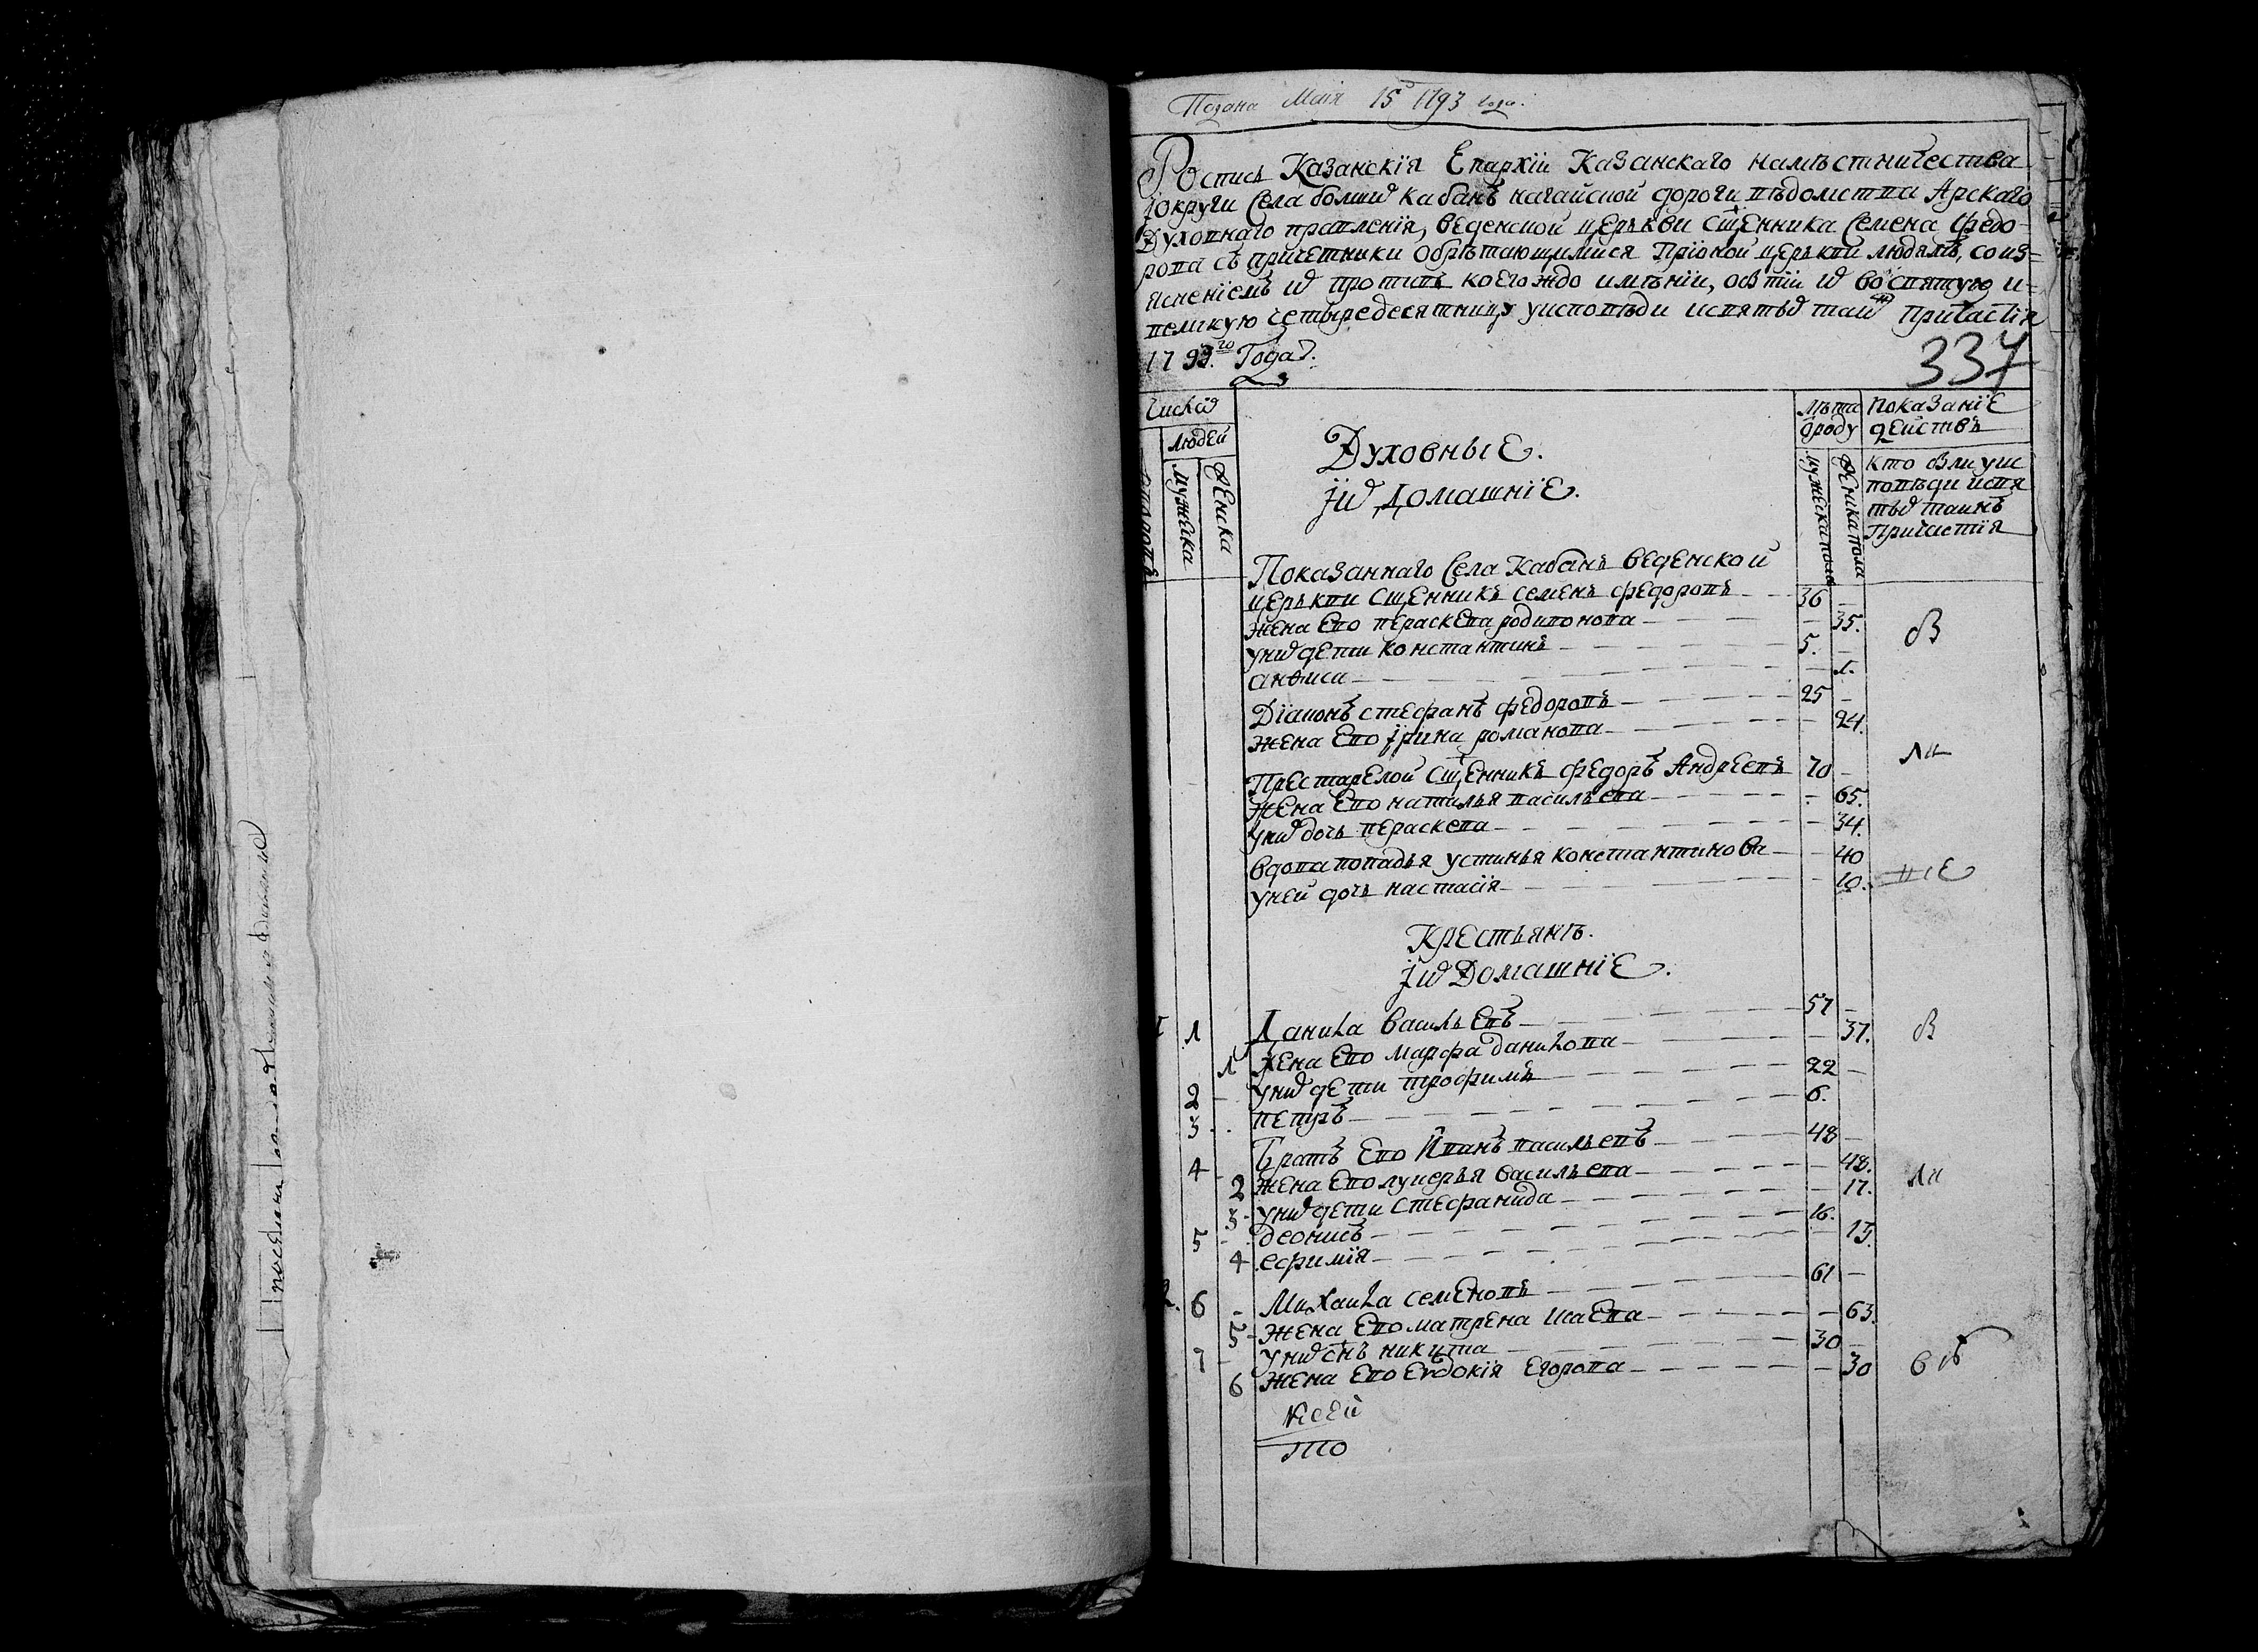 Подана Маія 15 1793 года.
Роспись Казанскія Епархіи Казанскаго намѣстничества
округи Села болших кабанъ нагайской дороги вѣдомства Арскаго
Духовнаго правленія, веденской церькви Сщенника Семена Федо-
рова съ причетники обрѣтающимися При оной церькви людямъ, со из=
яснениемъ и противъ коегождо имѣнии, о бытіи их во святую и=
великую четыредесятницу у исповѣди и святых таин Причастія
1793.го Года.
337
Число
людей
мужеска
женска
Духовные.
И их Домашніе.
лѣта
ѿ роду
мужеска пола
женска пола
показаніе
действъ
кто былъ у ис
поведи и свя
тых таинъ
Причастія
Показаннаго Села Кабанъ веденской
церькви Сщенникъ Семенъ Федоровъ 36
жена Ево пераскева родивонова 35.
У них дети Константинъ 5.
анфиса 1.
Діаконъ стефанъ федоровъ 25
жена Ево Ирина романова 24.
Престарелой Сщенникъ Федоръ Андреевъ 70
Жена Ево наталья васильева 65.
У них дочь пераскева 34.
вдова попадья устинья константинова 40
У ней дочь настасія 10.
Крестьянѣ.
И их Домашніе.
1 Данила Васильевъ 57
1 Жена Ево марфа данилова 37.
2 У них дети трофимъ 22
3 петръ 6.
4 Братъ Ево Иванъ васильевъ 48
2 Жена Ево лукерья Васильева 48.
3 У них дети Стефанида 17.
5 деонисъ 16.
4 ефимія 15.
2. 6 Михаила семеновъ 61
5 Жена Ево матрена Исаева 63.
7 У них снъ никита 30
6 Жена Ево Евдокія Егорова 30